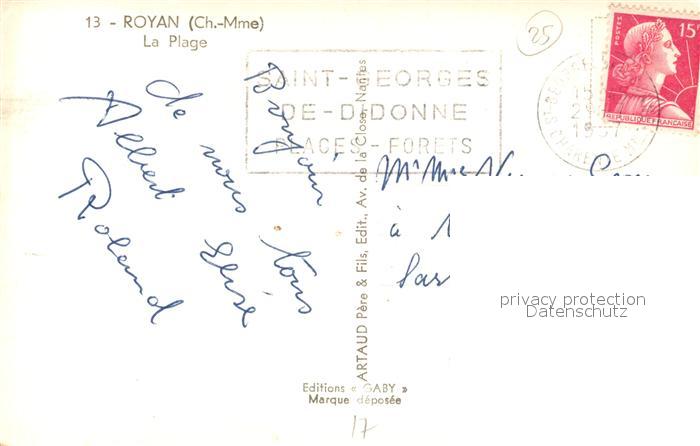 13 - ROYAN (Ch.-Mme)
La Plage
25
SAINT-GEORGES
DE-DIDONNE
PLAGES-FORETS
POSTES
15F
REPUBLIQUE FRANÇAISE
Bonjour
de nous tous
Albert Elise
Roland
ARTAUD Père & Fils, Edit., Av. de la Close, Nantes
Mr Mme
à
privacy protection
Datenschutz
Editions « GABY »
Marque déposée
17